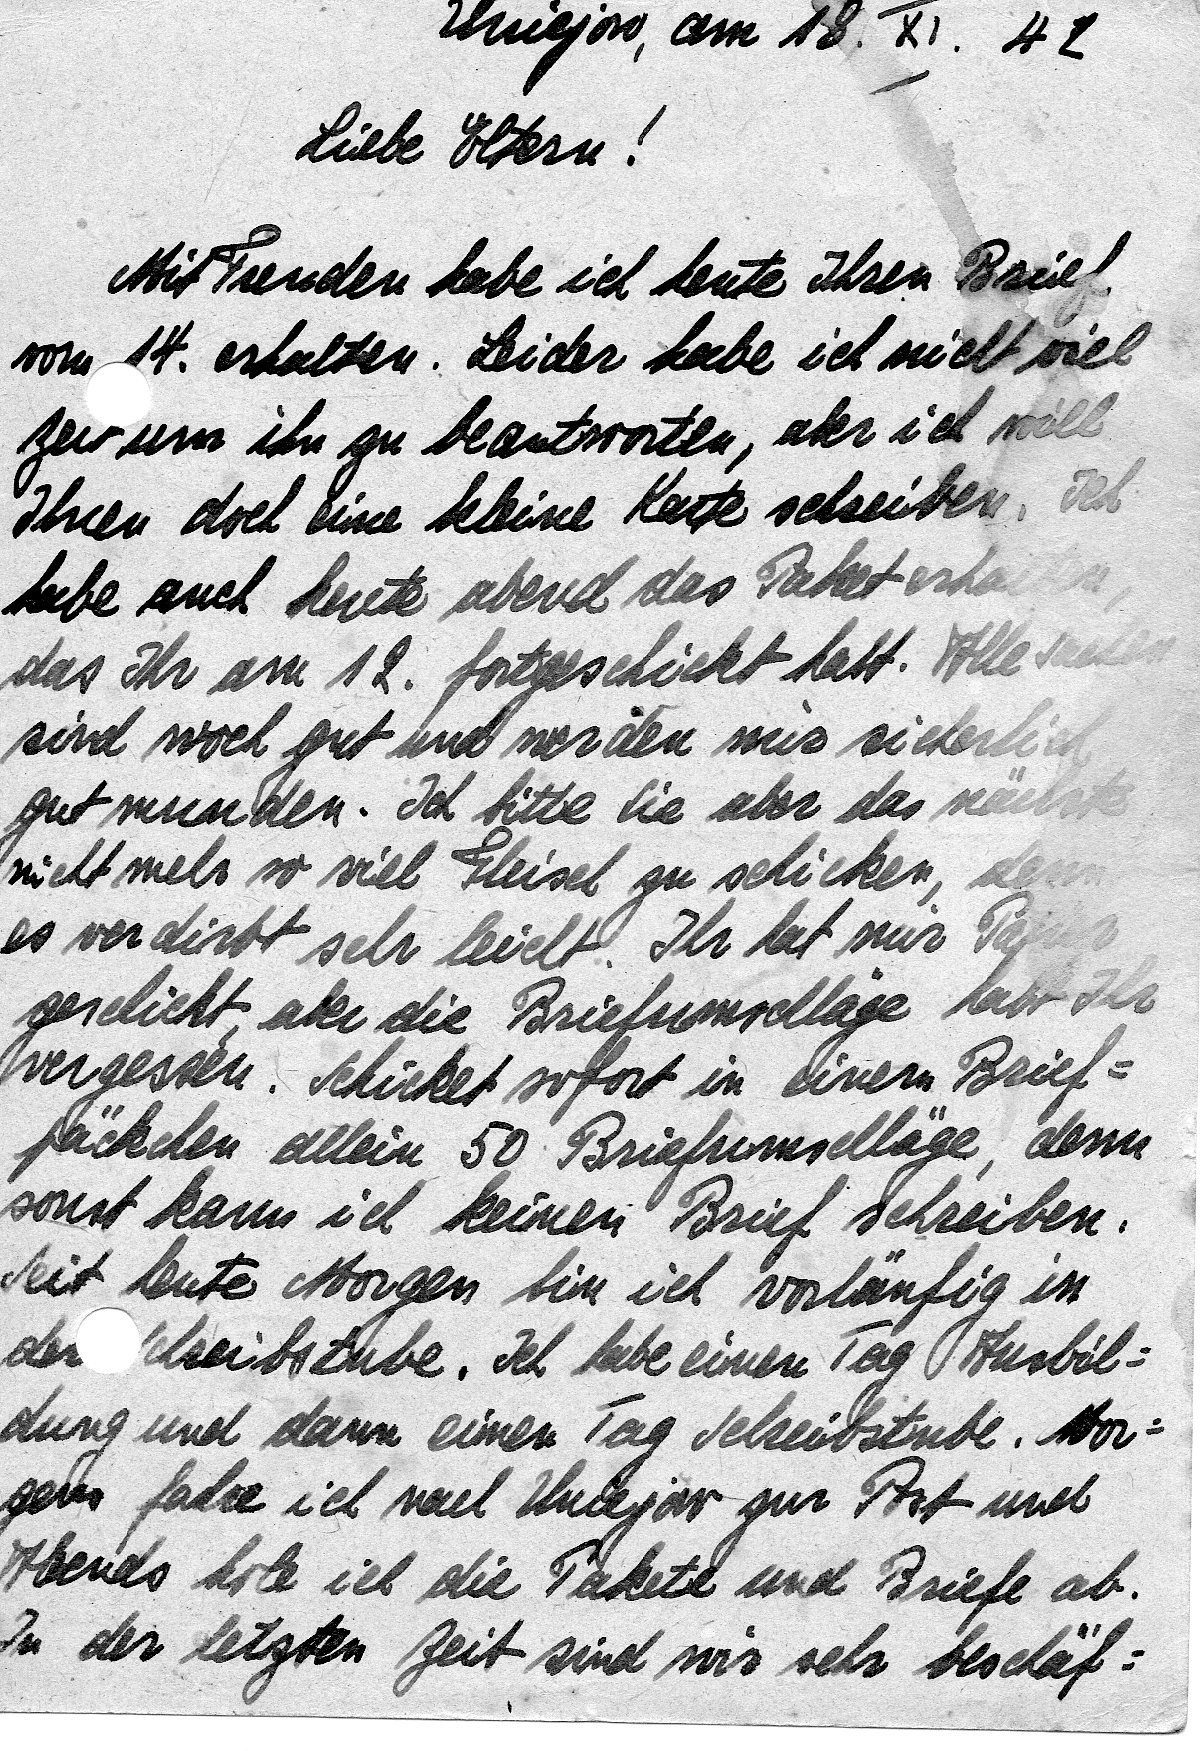 Uniejow, am 18. XI. 42
Liebe Eltern!
Mit Freuden habe ich heute Ihren Brief
vom 14. erhalten. Leider habe ich nicht viel
Zeit um ihn zu beantworten, aber ich will
Ihnen doch eine kleine Karte schreiben. Ich
habe auch heute abend das Paket erhalten,
das Ihr am 12. fortgeschickt habt. Alle sachen
sind noch gut und werden mir sicherlich
gut munden. Ich bitte Sie aber das nächste
nicht mehr so viel Fleisch zu schicken, denn
es verdirbt sehr leicht. Ihr hat mir Papier
geschickt, aber die Briefumschläge habt Ihr
vergessen. Schicket sofort in einem Brief=
päckchen allein 50 Briefumschläge, denn
sonst kann ich keinen Brief schreiben.
Seit heute Morgen bin ich vorläufig in
der Schreibstube. Ich habe einen Tag Ausbil=
dung und dann einen Tag Schreibstube. Mor=
gens fahre ich nach Uniejow zur Post und
Abends hole ich die Pakete und Briefe ab.
In der letzten Zeit sind wir sehr beschäf=